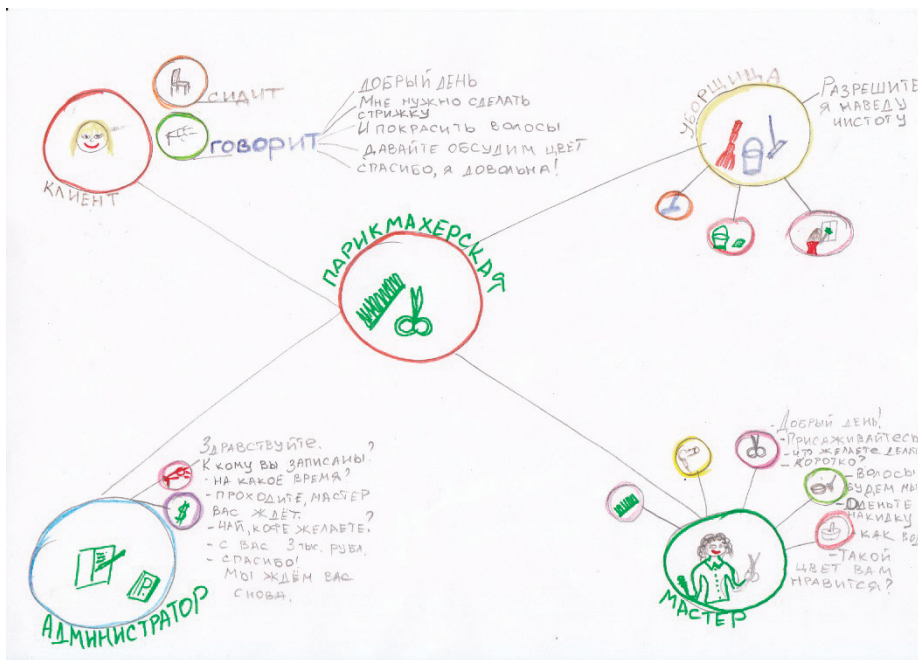 СИДИТ
ГОВОРИТ
КЛИЕНТ
ДОБРЫЙ ДЕНЬ
МНЕ НУЖНО СДЕЛАТЬ
СТРИЖКУ
И ПОКРАСИТЬ ВОЛОСЫ
ДАВАЙТЕ ОБСУДИМ ЦВЕТ
СПАСИБО, Я ДОВОЛЬНА!
УБОРЩИЦА
РАЗРЕШИТЕ
Я НАВЕДУ
ЧИСТОТУ
ПАРИКМАХЕРСКАЯ
ЗДРАВСТВУЙТЕ.
К КОМУ ВЫ ЗАПИСАНЫ?
- НА КАКОЕ ВРЕМЯ?
- ПРОХОДИТЕ, МАСТЕР
ВАС ЖДЁТ.
- ЧАЙ, КОФЕ ЖЕЛАЕТЕ?
- С ВАС 3 ТЫС. РУБЛ.
- СПАСИБО!
МЫ ЖДЁМ ВАС
СНОВА.
$
Р
АДМИНИСТРАТОР
- ДОБРЫЙ ДЕНЬ!
- ПРИСАЖИВАЙТЕСЬ
- ЧТО ЖЕЛАЕТЕ ДЕЛА
- КОРОТКО?
- ВОЛОСЫ
БУДЕМ МЫ
- ОДЕНЬТЕ
НАКИДКУ
- КАК ВОД
- ТАКОЙ
ЦВЕТ ВАМ
НРАВИТСЯ?
МАСТЕР